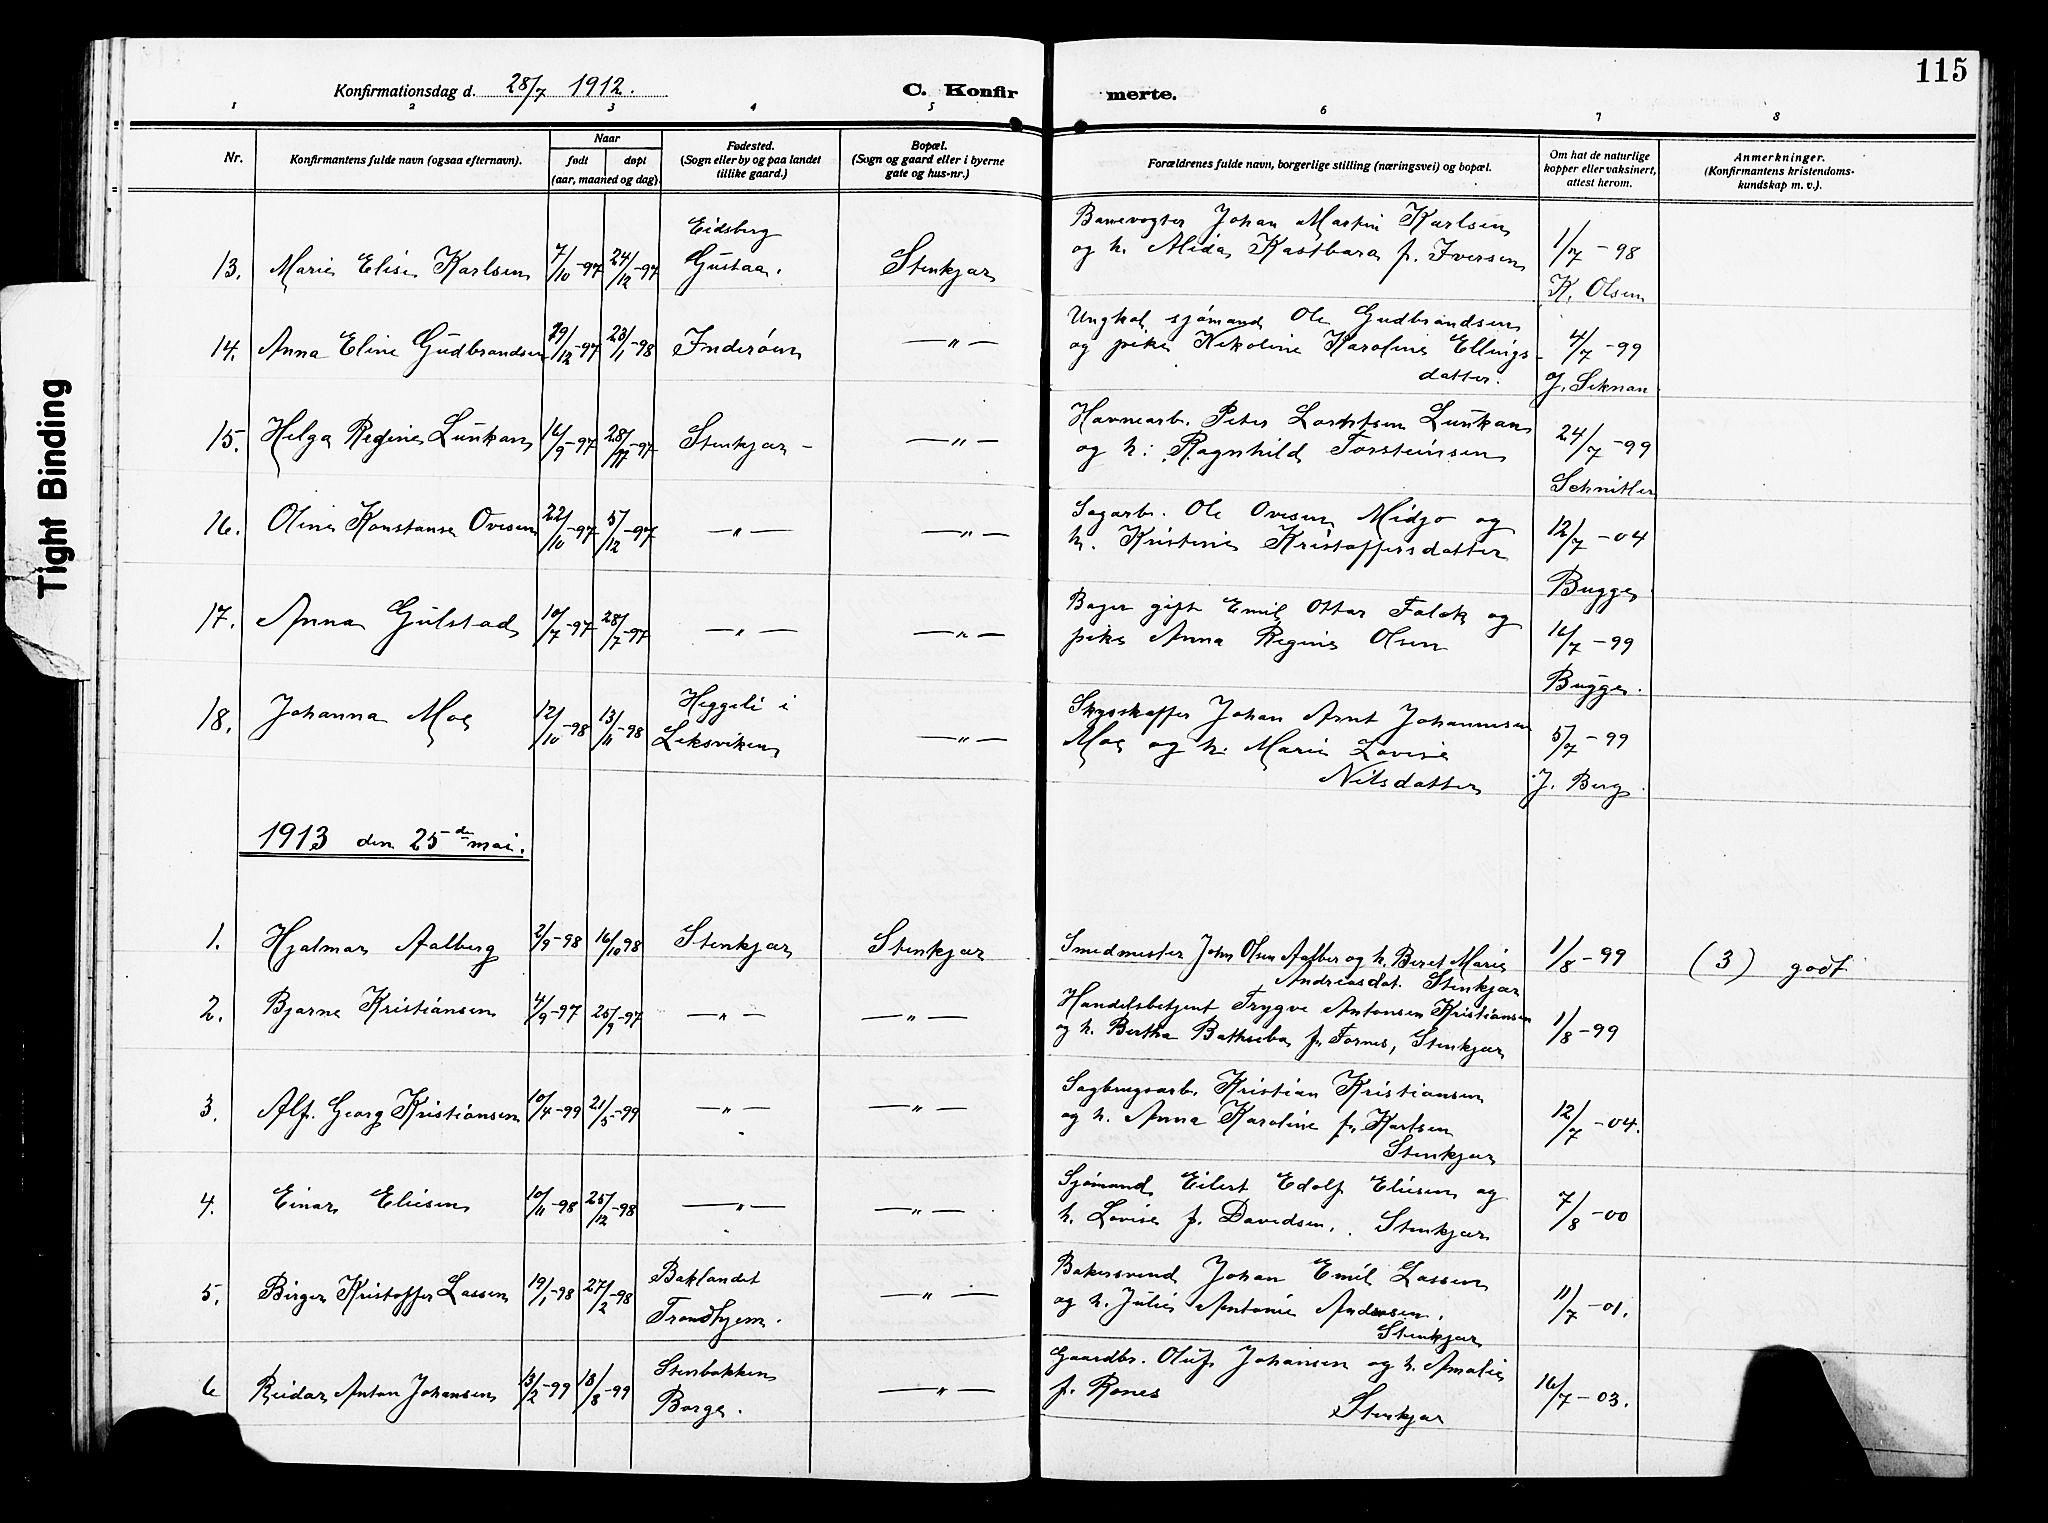 115
Konfirmationsdag d. 28/7 1912.
C. Konfirmerte.
1 2 3 4 5 6 7 8
Nr.
Konfirmantens fulde navn (ogsaa efternavn).
Naar
født døpt
(aar, maaned og dag).
Fødested.
(Sogn eller by og paa landet
tillike gaard.)
Bopæl.
(Sogn og gaard eller i byerne
gate og hus-nr.)
Forældrenes fulde navn, borgerlige stilling (næringsvei) og bopæl.
Om hat de naturlige
kopper eller vaksinert,
attest herom.
Anmerkninger.
(Konfirmantens kristendoms-
kundskap m. v.).
Tight Binding
13. Marie Elise Karlsen 7/10-97 24/12-97 Eidsberg
Gustaa. Stenkjær
Banevogter Johan Martin Karlsen
og h. Alida Kastbara f. Iversen
1/7-98
K. Olsen
14. Anna Eline Gudbrandsen 29/12-97 23/1-98 Inderøen —"—
Ungkal sjømand Ole Gudbrandsen
og pike Nikoline Karoline Ellings-
datter.
4/7-99
J. Seknan
15. Helga Regine Lunkan 16/9-97 28/11-97 Stenkjær —"—
Havnearb. Peter Lorntsen Lunkan
og h. Ragnhild Torsteinsen
24/7-99
Schnitler
16. Oline Konstanse Ovesen 22/10-97 5/12-97 —"— —"—
Sagarb. Ole Ovesen Midjo og
h. Kristine Kristoffersdatter
12/7-04
Bugge
17. Anna Gulstad 10/7-97 28/7-97 —"— —"—
Bager gift Emil Ottar Falck og
pike Anna Regine Olsen
16/7-99
Bugge.
18. Johanna Moe 12/10-98 13/11-98 Heggeli i
Leksviken —"—
Skysskaffer Johan Arnt Johannesen
Moe og h. Marie Lovise
Nilsdatter
5/7-99
J. Berg.
1913 den 25de mai.
1. Hjalmar Aalberg 2/9-98 16/10 98 Stenkjær Stenkjær
Smedmester John Olsen Aalber og h. Beret Marie
Andreasdat. Stenkjær
1/8-99 (3) godt
2. Bjarne Kristiansen 4/9-97 25/9-97 —"— —"—
Handelsbetjent Trygve Antonsen Kristiansen
og h. Bertha Bathseba f. Fornes, Stenkjær
1/8-99
3. Alf. Georg Kristiansen 10/4-99 21/5-99 —"— —"—
Sagbrugsarb. Kristian Kristiansen
og h. Anna Karoline f. Karlsen
Stenkjær
12/7-04.
4. Einar Eliesen 10/11-98 25/12-98 —"— —"—
Sjømand Eilert Edolf Eliesen og
h. Lovise f. Davidsen. Stenkjær
7/8-00
5. Birger Kristoffer Lassen 19/1-98 27/2-98 Baklandet
Trondhjem. —"—
Bakersvend Johan Emil Lassen
og h. Julie Antonie Andersen.
Stenkjær
11/7-01.
6 Reidar Anton Johansen 13/2-99 18/8-99 Stenbakken
Borge. —"—
Gaardbr. Oluf Johansen og h. Amalie
f. Rones
Stenkjær
16/7-03.